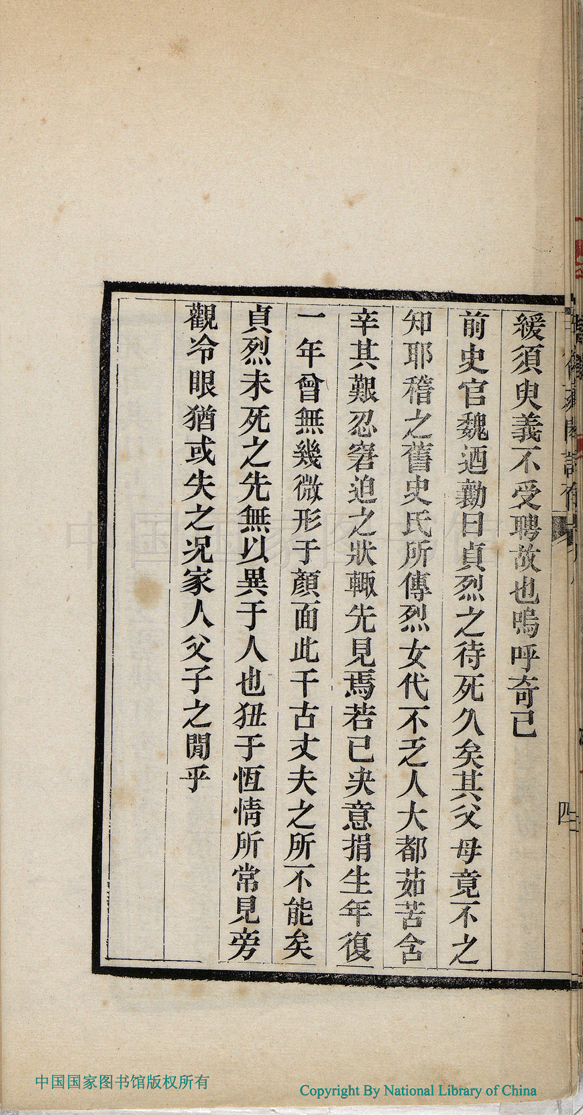 緩須臾義不受聘故也嗚呼奇已
前史官魏迺勷曰貞烈之待死久矣其父母竟不之
知耶稽之舊史氏所傳烈女代不乏人大都茹苦含
辛其艱忍窘迫之狀輙先見焉若已夬意捐生年復
一年曾無幾微形于顏面此千古丈夫之所不能矣
貞烈未死之先無以異于人也狃于恆情所常見旁
觀冷眼猶或失之况家人父子之閒乎
中国国家图书馆版权所有
Copyright By National Library of China